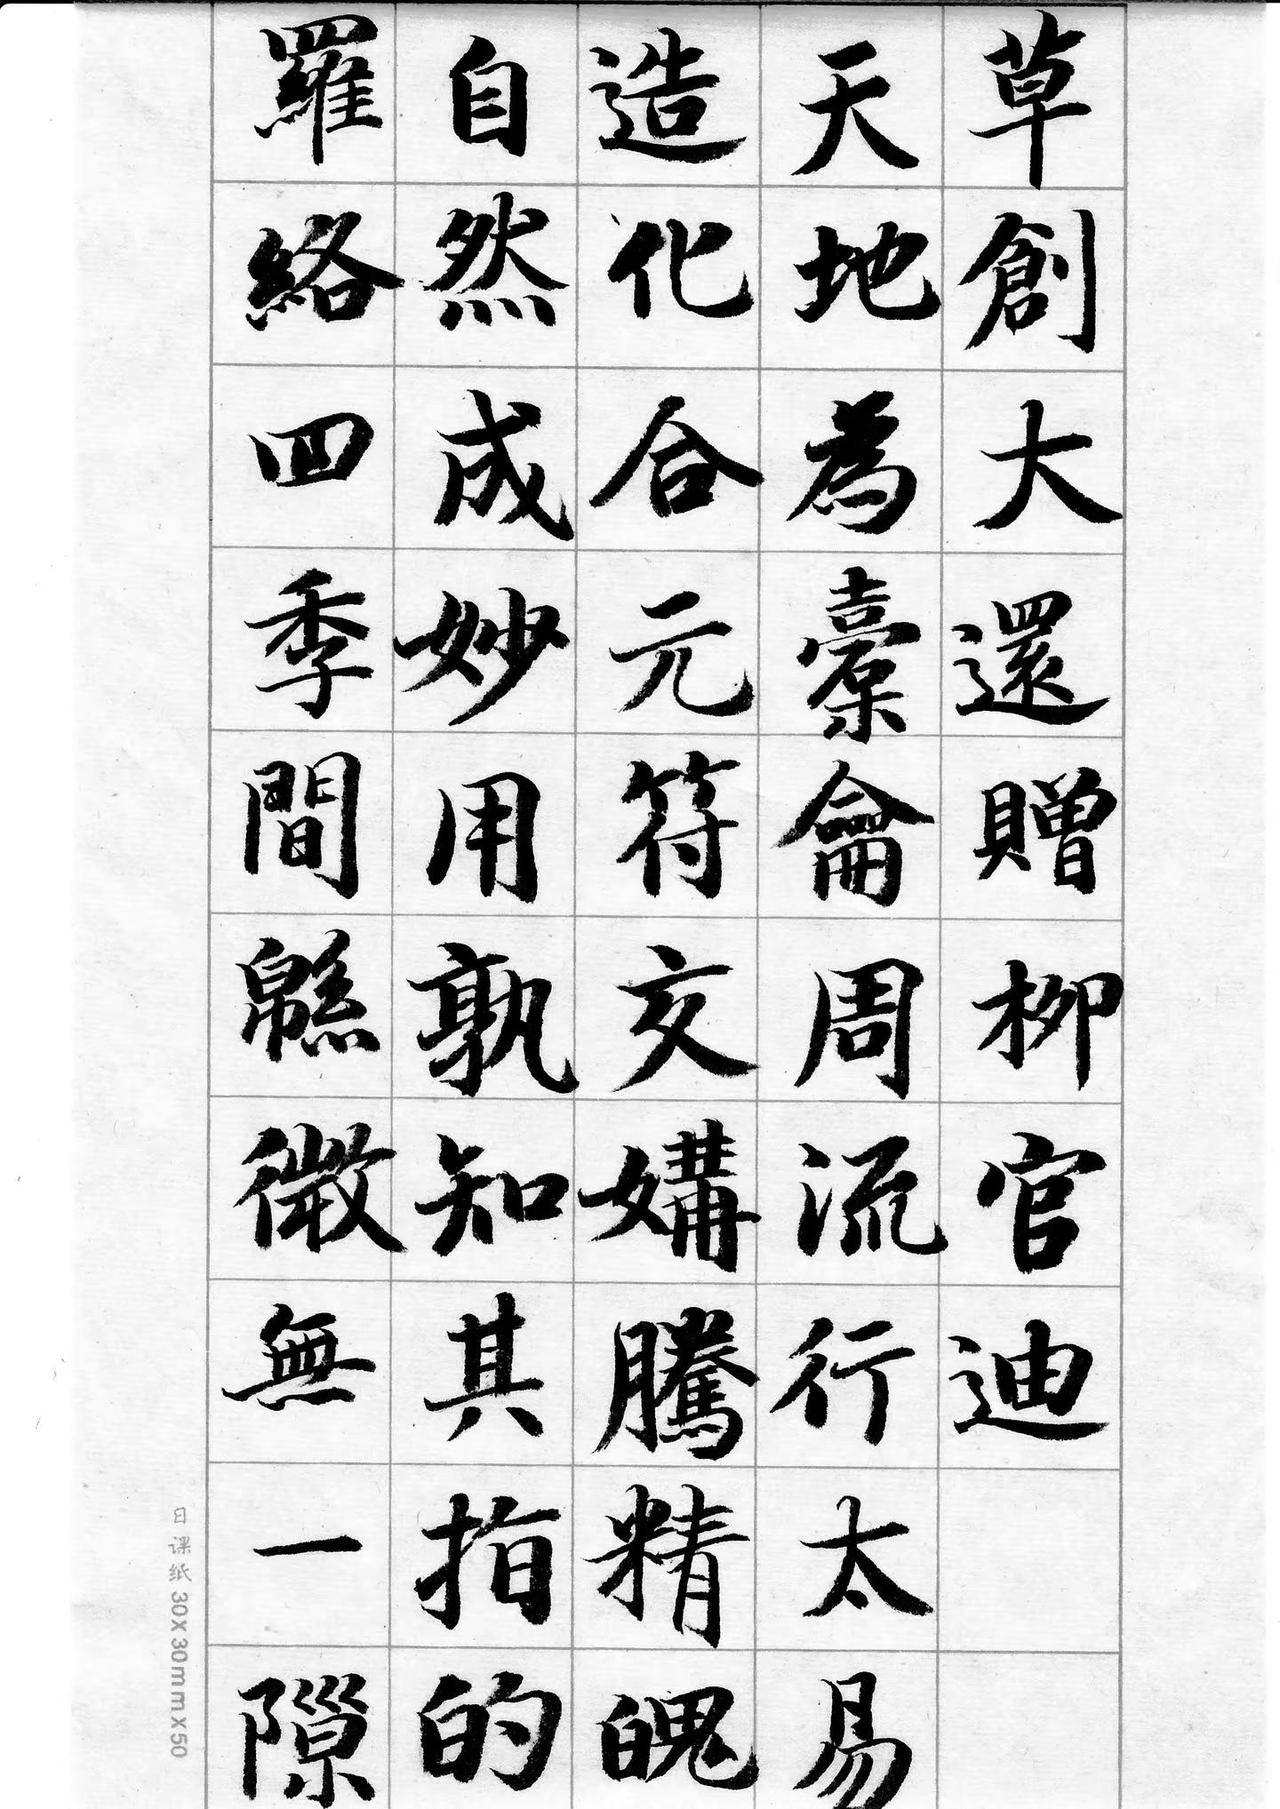 草創大還贈柳官迪
天地為橐籥周流行太易
造化合元符交媾騰精魄
自然成妙用孰知其指的
羅絡四季間緜微無一隙
日课纸 30x30mmx50